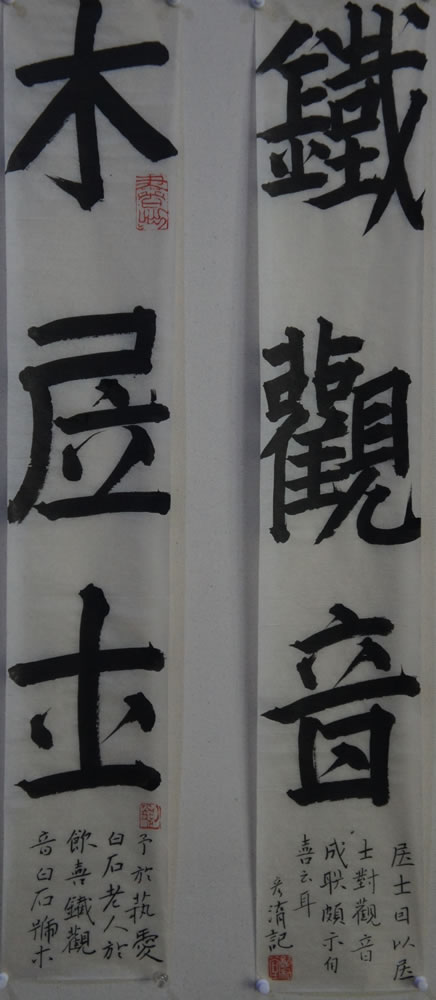 鐵觀音
木居士
予於蓺愛
白石老人於
飲喜鐵觀
音白石號木
居士因以居
士對觀音
成联頗亦自
喜云耳
記